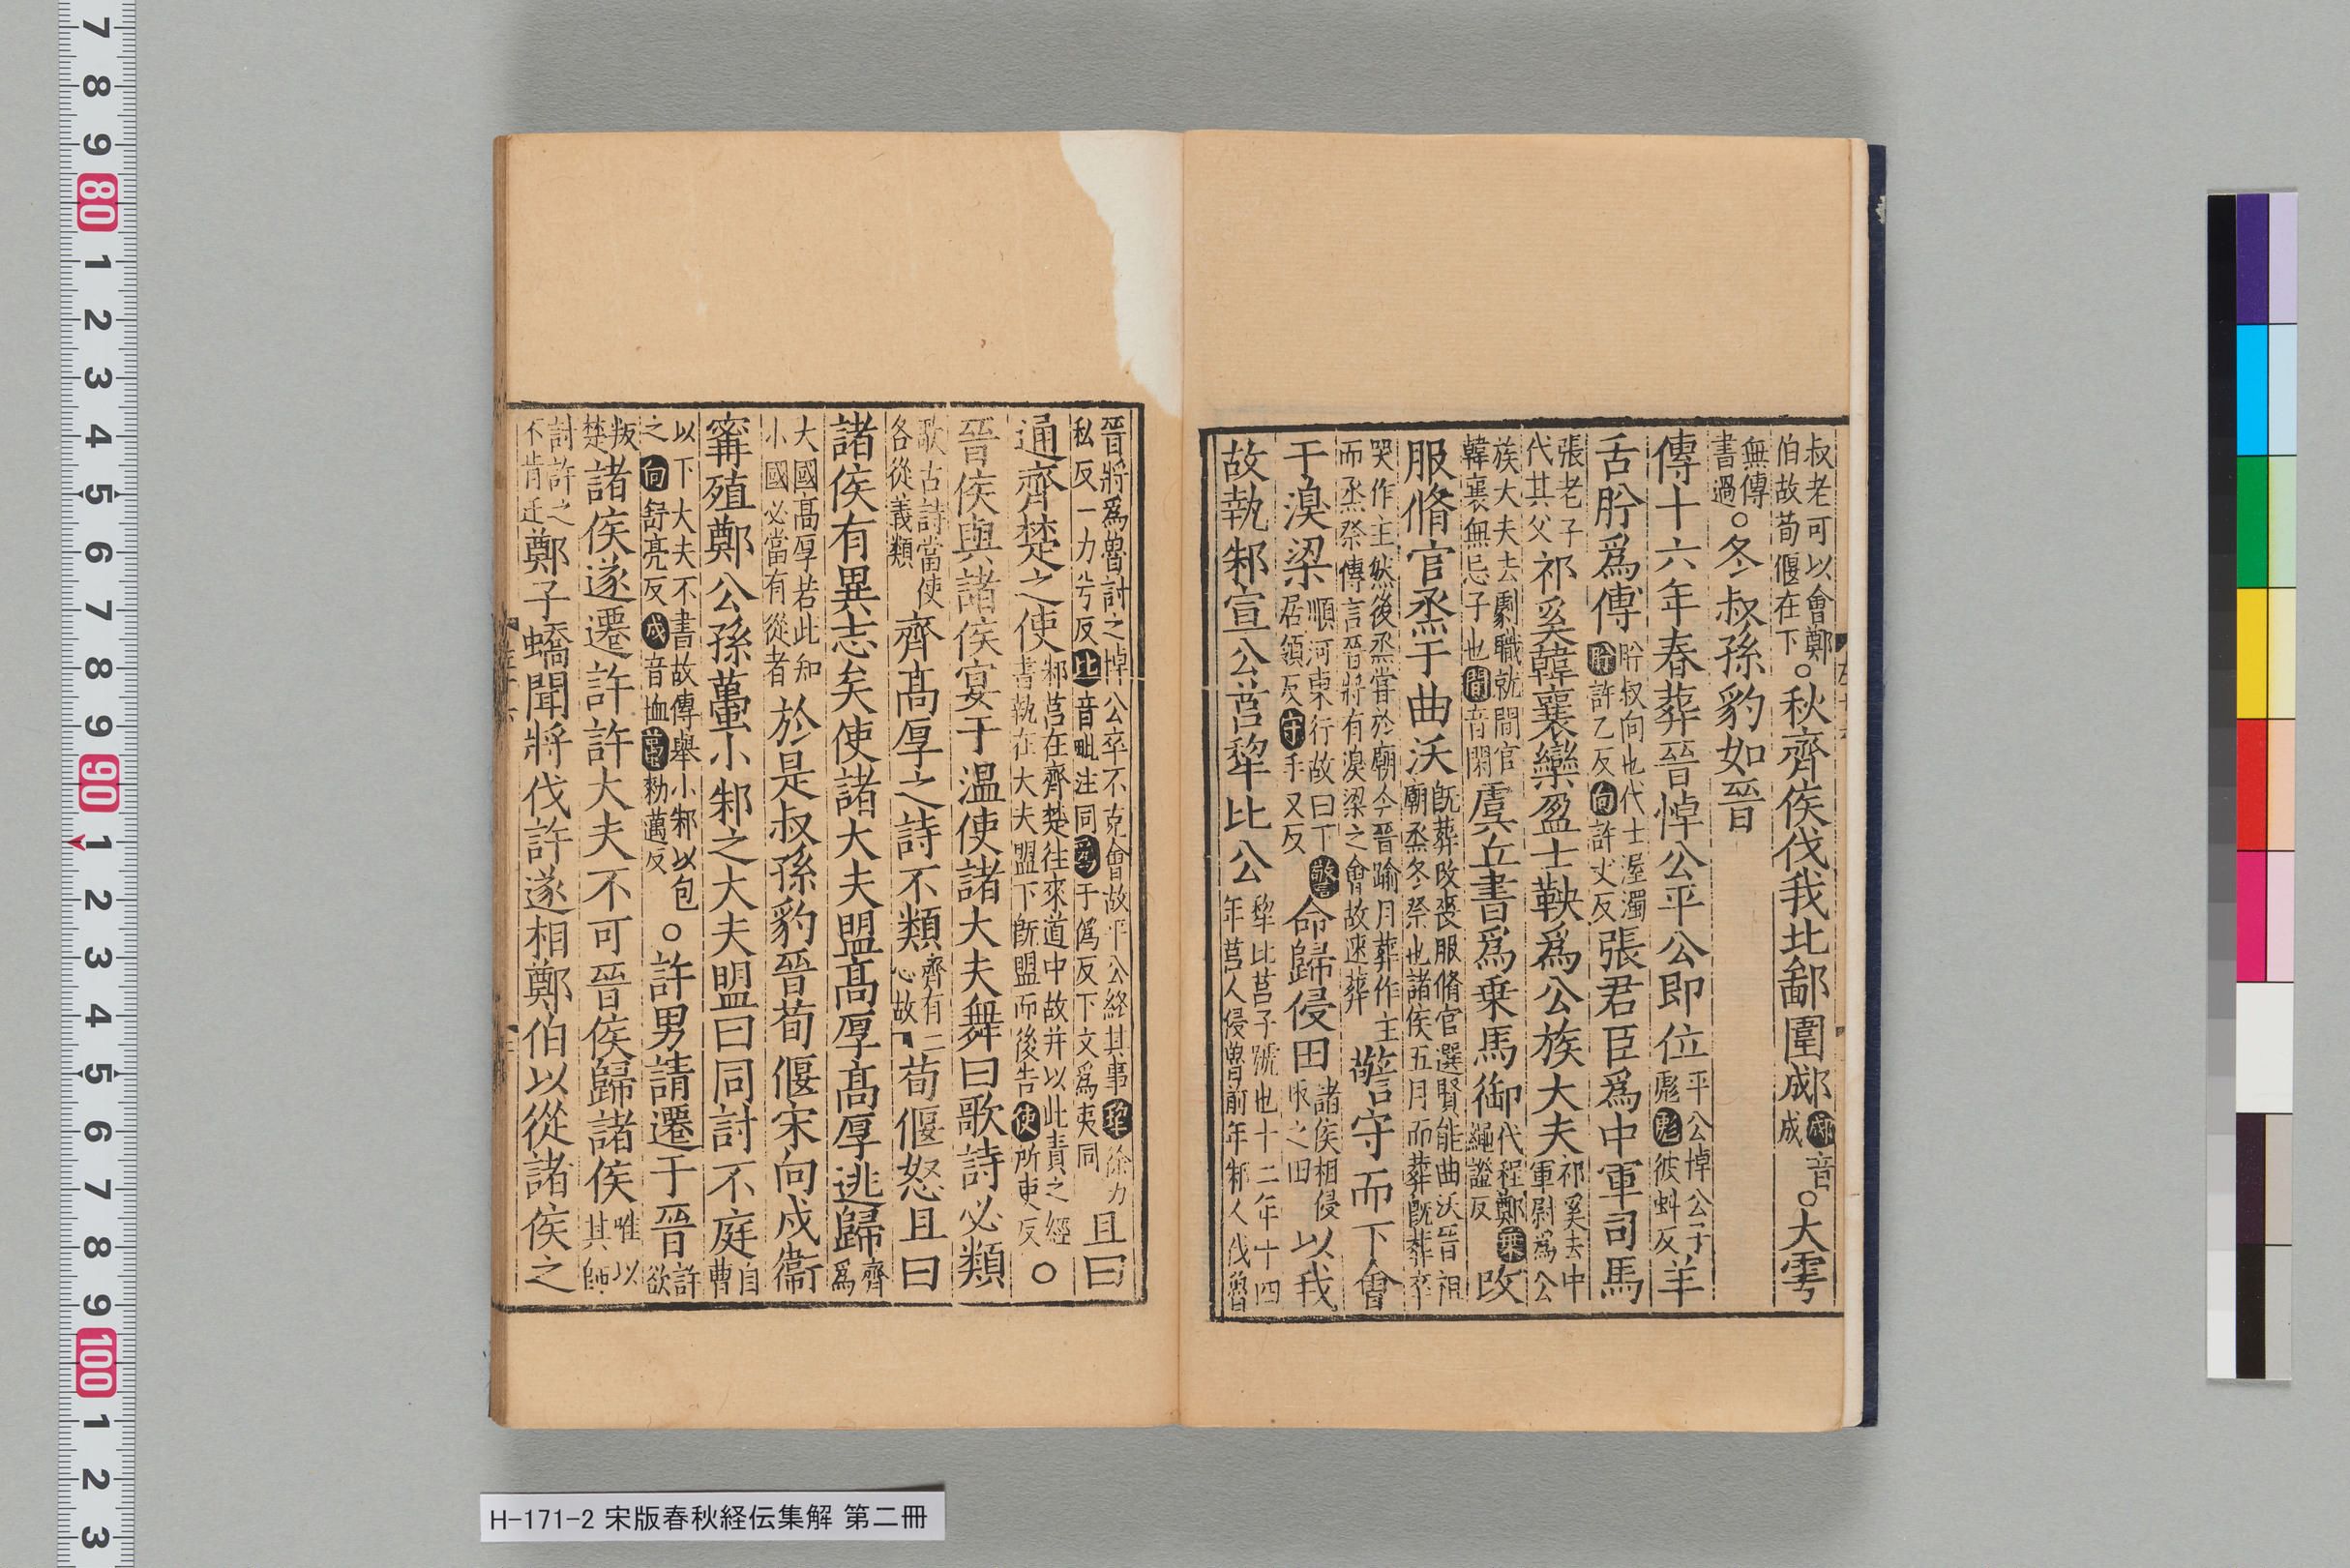 叔老可以會鄭伯故荀偃在下○秋齊侯伐我北鄙圍郕郕音成○大雩
無傳書過○冬叔孫豹如晉
傳十六年春葬晉悼公平公即位平公悼公子彪彪彼蚪反羊
舌肸爲傅肸叔向也代士渥濁肸許乙反向許丈反張君臣爲中軍司馬
張老子代其父祁奚韓襄欒盈士鞅爲公族大夫祁奚去中軍尉爲公
族大夫去劇職就閒官韓襄無忌子也閒音閑虞丘書爲乗馬御代程鄭乗繩證反改
服脩官烝于曲沃既葬改喪服脩官選賢能曲沃晉祖廟烝冬祭也諸侯五月而葬既葬卒
哭作主然後烝嘗於廟今晉踰月葬作主而烝祭傳言晉將有溴梁之會故速葬警守而下會
于溴梁順河東行故曰下警居領反守手又反命歸侵田諸侯相侵取之田以我
故執邾宣公莒犂比公犂比莒子號也十二年十四年莒人侵魯前年邾人伐魯
晉將爲魯討之悼公卒不克會故平公終其事犂徐力私反一力兮反比音毗注同爲于僞反下文爲夷同且曰
通齊楚之使邾莒在齊楚往來道中故并以此責之經書執在大夫盟下既盟而後告使所吏反○
晉侯與諸侯宴于温使諸大夫舞曰歌詩必類
歌古詩當使各從義類齊髙厚之詩不類齊有二心故荀偃怒且曰
諸侯有異志矣使諸大夫盟髙厚髙厚逃歸齊爲
大國髙厚若此知小國必當有從者於是叔孫豹晉荀偃宋向戌衞
甯殖鄭公孫蠆小邾之大夫盟曰同討不庭自曹
以下大夫不書故傳舉小邾以包之向舒亮反戌音恤蠆勑邁反○許男請遷于晉許欲
叛楚諸侯遂遷許許大夫不可晉侯歸諸侯唯以其師
討許之不肯迁鄭子蟜聞將伐許遂相鄭伯以從諸侯之
H-171-2 宋版春秋経伝集解 第二冊
7 8 9 80 1 2 3 4 5 6 7 8 9 90 1 2 3 4 5 6 7 8 9 100 1 2 3